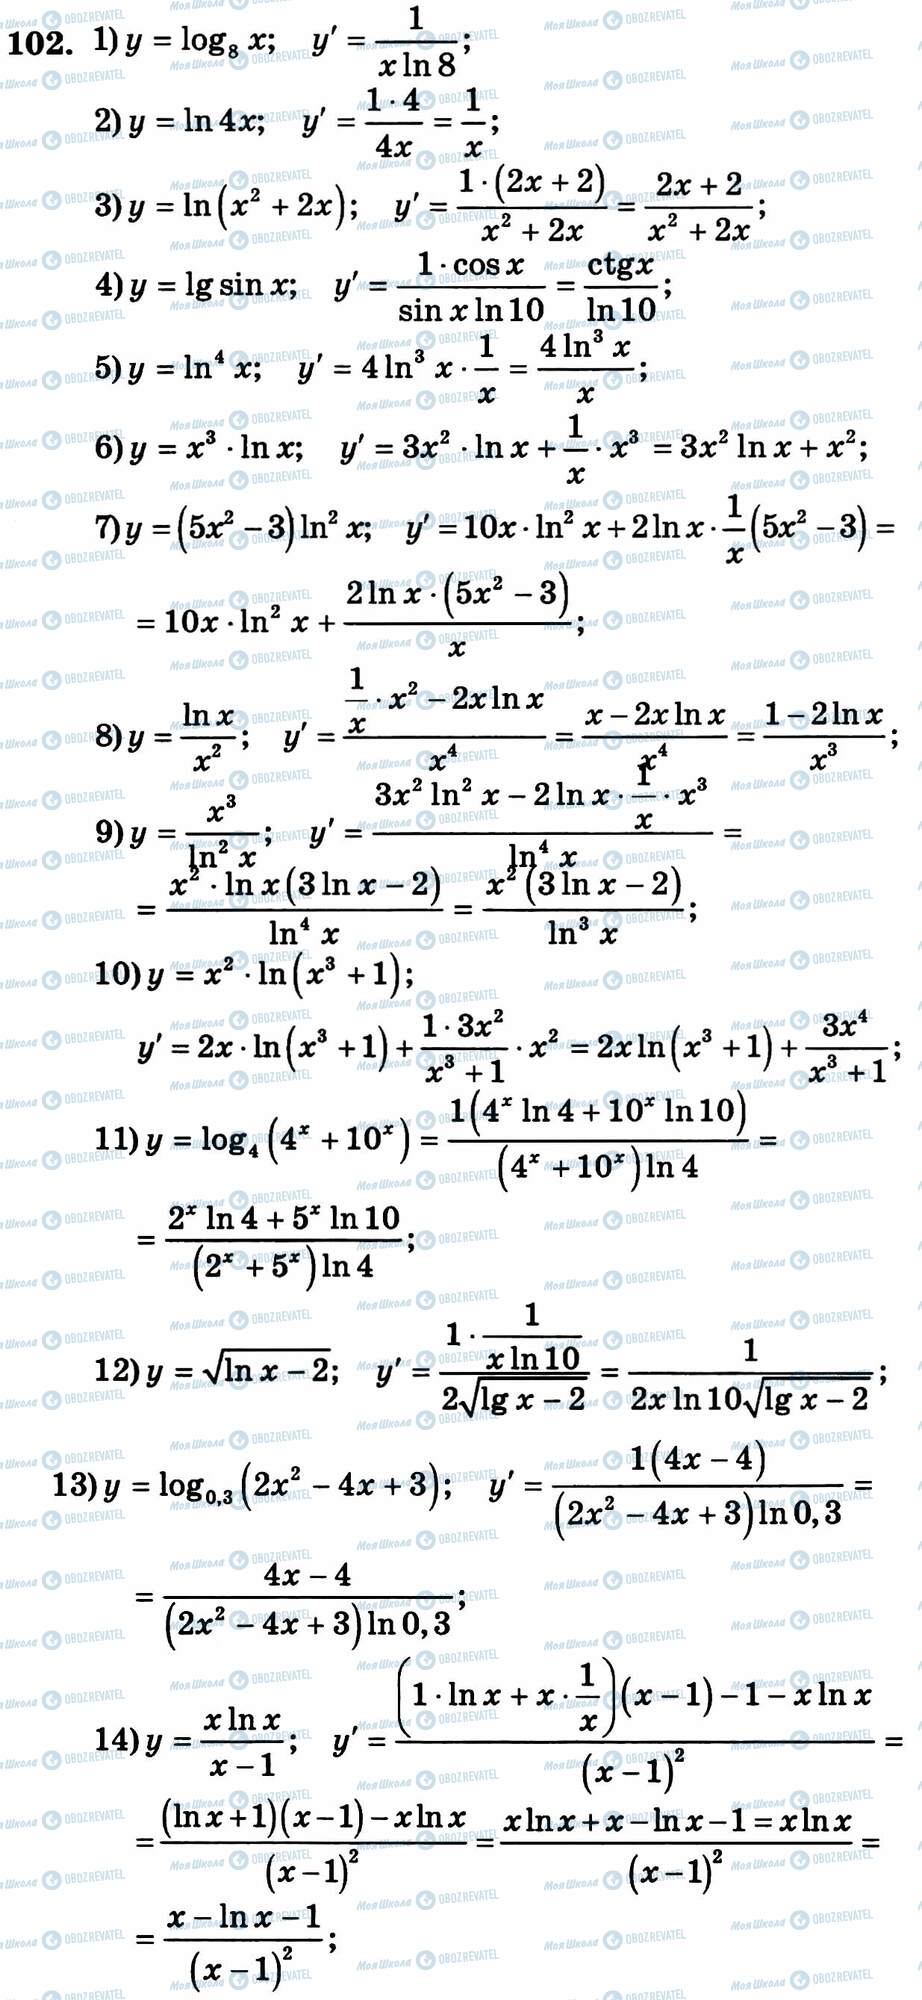 102. 1) y = log₈ x; y′ = 1/(x ln 8);
2) y = ln 4x; y′ = (1 · 4)/(4x) = 1/x;
3) y = ln(x² + 2x); y′ = (1 · (2x + 2))/(x² + 2x) = (2x + 2)/(x² + 2x);
4) y = lg sin x; y′ = (1 · cos x)/(sin x ln 10) = (ctgx)/(ln 10);
5) y = ln⁴ x; y′ = 4 ln³ x · 1/x = (4 ln³ x)/x;
6) y = x³ · ln x; y′ = 3x² · ln x + 1/x · x³ = 3x² ln x + x²;
7) y = (5x² − 3) ln² x; y′ = 10x · ln² x + 2 ln x · 1/x (5x² − 3) =
= 10x · ln² x + (2 ln x · (5x² − 3))/x;
8) y = (ln x)/x²; y′ = (1/x · x² − 2x ln x)/x⁴ = (x − 2x ln x)/x⁴ = (1 − 2 ln x)/x³;
9) y = x³/(ln² x); y′ = (3x² ln² x − 2 ln x · 1/x · x³)/(ln⁴ x) =
= (x² · ln x (3 ln x − 2))/(ln⁴ x) = (x² (3 ln x − 2))/(ln³ x);
10) y = x² · ln(x³ + 1);
y′ = 2x · ln(x³ + 1) + (1 · 3x²)/(x³ + 1) · x² = 2x ln(x³ + 1) + (3x⁴)/(x³ + 1);
11) y = log₄(4ˣ + 10ˣ) = (1(4ˣ ln 4 + 10ˣ ln 10))/((4ˣ + 10ˣ) ln 4) =
= (2ˣ ln 4 + 5ˣ ln 10)/((2ˣ + 5ˣ) ln 4);
12) y = √(ln x − 2); y′ = (1 · 1/(x ln 10))/(2√(lg x − 2)) = 1/(2x ln 10 √(lg x − 2));
13) y = log₀,₃(2x² − 4x + 3); y′ = (1(4x − 4))/((2x² − 4x + 3) ln 0,3) =
= (4x − 4)/((2x² − 4x + 3) ln 0,3);
14) y = (x ln x)/(x − 1); y′ = ((1 · ln x + x · 1/x)(x − 1) − 1 − x ln x)/((x − 1)²) =
= ((ln x + 1)(x − 1) − x ln x)/((x − 1)²) = (x ln x + x − ln x − 1 = x ln x)/((x − 1)²) =
= (x − ln x − 1)/((x − 1)²);